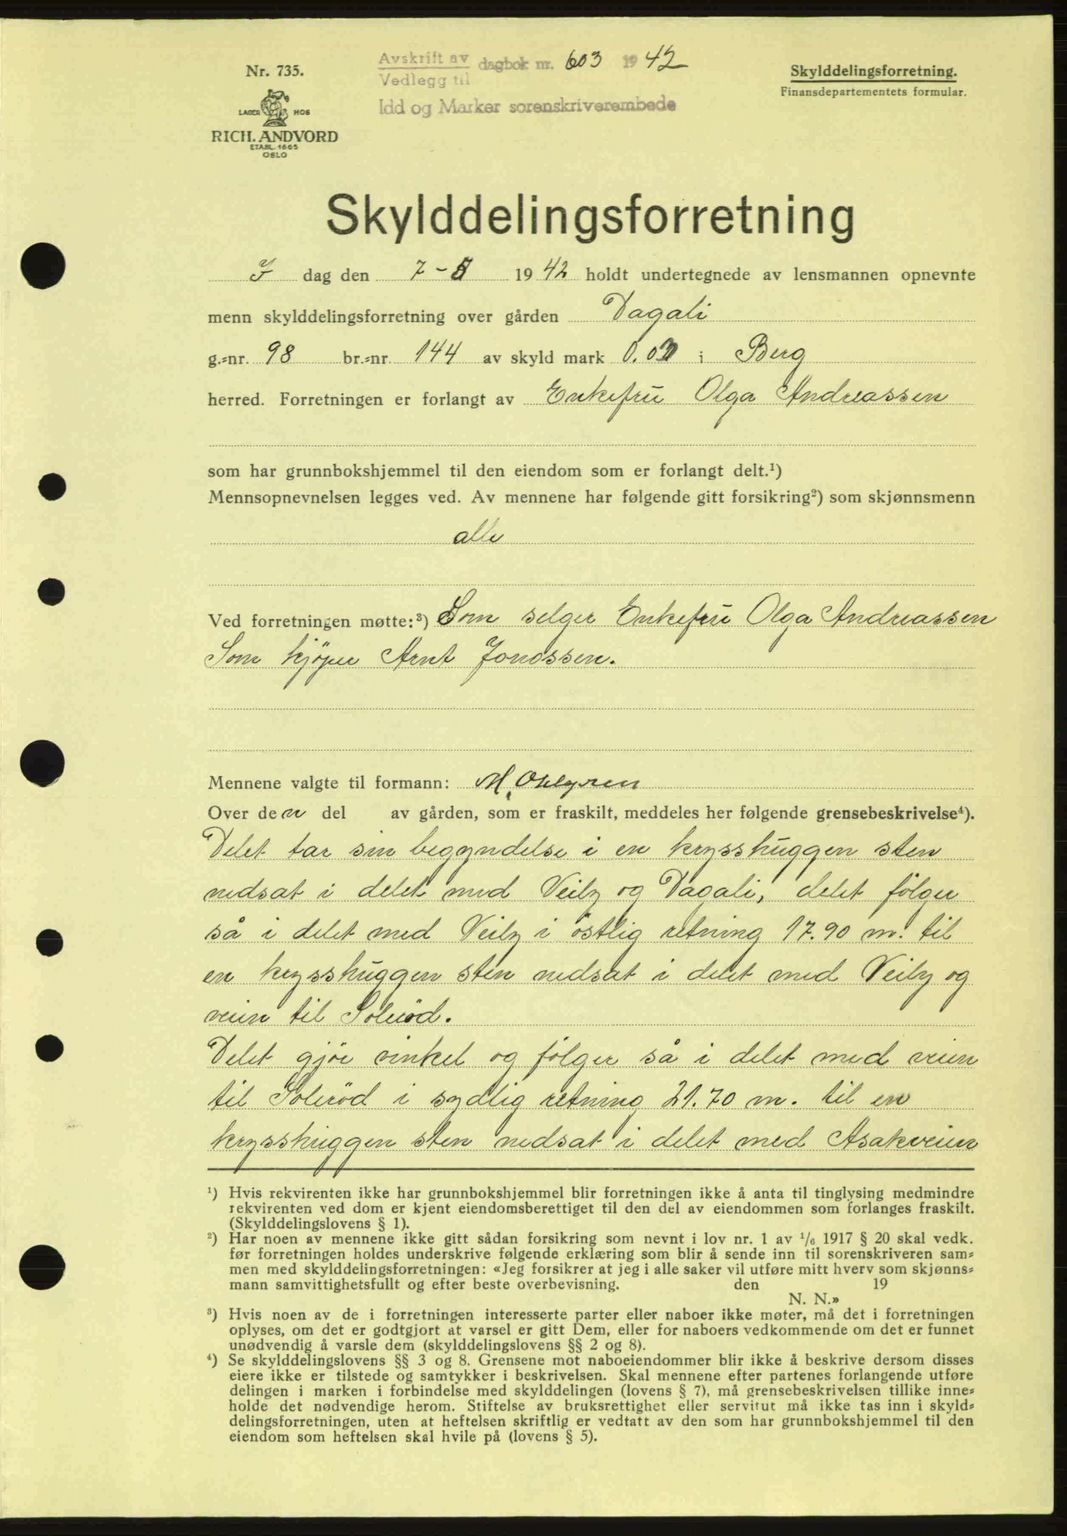 Nr. 735.
LAGER HOS
RICH. ANDVORD
ETABL. 1865
OSLO
Avskrift av
Vedlegg til
dagbok nr. 603 1942
Idd og Marker sorenskriverembede
Skylddelingsforretning.
Finansdepartementets formular.
Skylddelingsforretning
I dag den 7-5 1942 holdt undertegnede av lensmannen opnevnte
menn skylddelingsforretning over gården Dagali
g.=nr. 98 br.=nr. 144 av skyld mark 0.0 i Berg
herred. Forretningen er forlangt av Enkefrü Olga Andreassen
som har grunnbokshjemmel til den eiendom som er forlangt delt.¹)
Mennsopnevnelsen legges ved. Av mennene har følgende gitt forsikring²) som skjønnsmenn
alle
Ved forretningen møtte:³) Som selger Enkefrü Olga Andreassen
Som kjøper Arnt Jonassen.
Mennene valgte til formann: M. Ohlgren
Over den del av gården, som er fraskilt, meddeles her følgende grensebeskrivelse⁴).
Delet tar sin begyndelse i en krysshüggen sten
nedsat i delet med Veiby og Dagali, delet følger
så i delet med Veiby i östlig retning 17.90 m. til
en krysshüggen sten nedsat i delet med Veiby og
veien til Soleröd.
Delet gjör vinkel og følger så i delet med veien
til Soleröd i sydlig retning 21.70 m. til en
krysshüggen sten nedsat i delet med Asakveien
¹) Hvis rekvirenten ikke har grunnbokshjemmel blir forretningen ikke å anta til tinglysing medmindre
rekvirenten ved dom er kjent eiendomsberettiget til den del av eiendommen som forlanges fraskilt.
(Skylddelingslovens § 1).
²) Har noen av mennene ikke gitt sådan forsikring som nevnt i lov nr. 1 av ¹/₆ 1917 § 20 skal vedk.
før forretningen holdes underskrive følgende erklæring som blir å sende inn til sorenskriveren sam=
men med skylddelingsforretningen: «Jeg forsikrer at jeg i alle saker vil utføre mitt hverv som skjønns=
mann samvittighetsfullt og efter beste overbevisning. den 19
N. N.»
³) Hvis noen av de i forretningen interesserte parter eller naboer ikke møter, må det i forretningen
oplyses, om det er godtgjort at varsel er gitt Dem, eller for naboers vedkommende om det er funnet
unødvendig å varsle dem (skylddelingslovens §§ 2 og 8).
⁴) Se skylddelingslovens §§ 3 og 8. Grensene mot naboeiendommer blir ikke å beskrive dersom disses
eiere ikke er tilstede og samtykker i beskrivelsen. Skal mennene efter partenes forlangende utføre
delingen i marken i forbindelse med skylddelingen (lovens § 7), må grensebeskrivelsen tillike inne=
holde det nødvendige herom. Stiftelse av bruksrettighet eller servitut må ikke tas inn i skyld=
delingsforretningen, uten at heftelsen skriftlig er vedtatt av den som har grunnbokshjemmel til den
eiendom som heftelsen skal hvile på (lovens § 5).